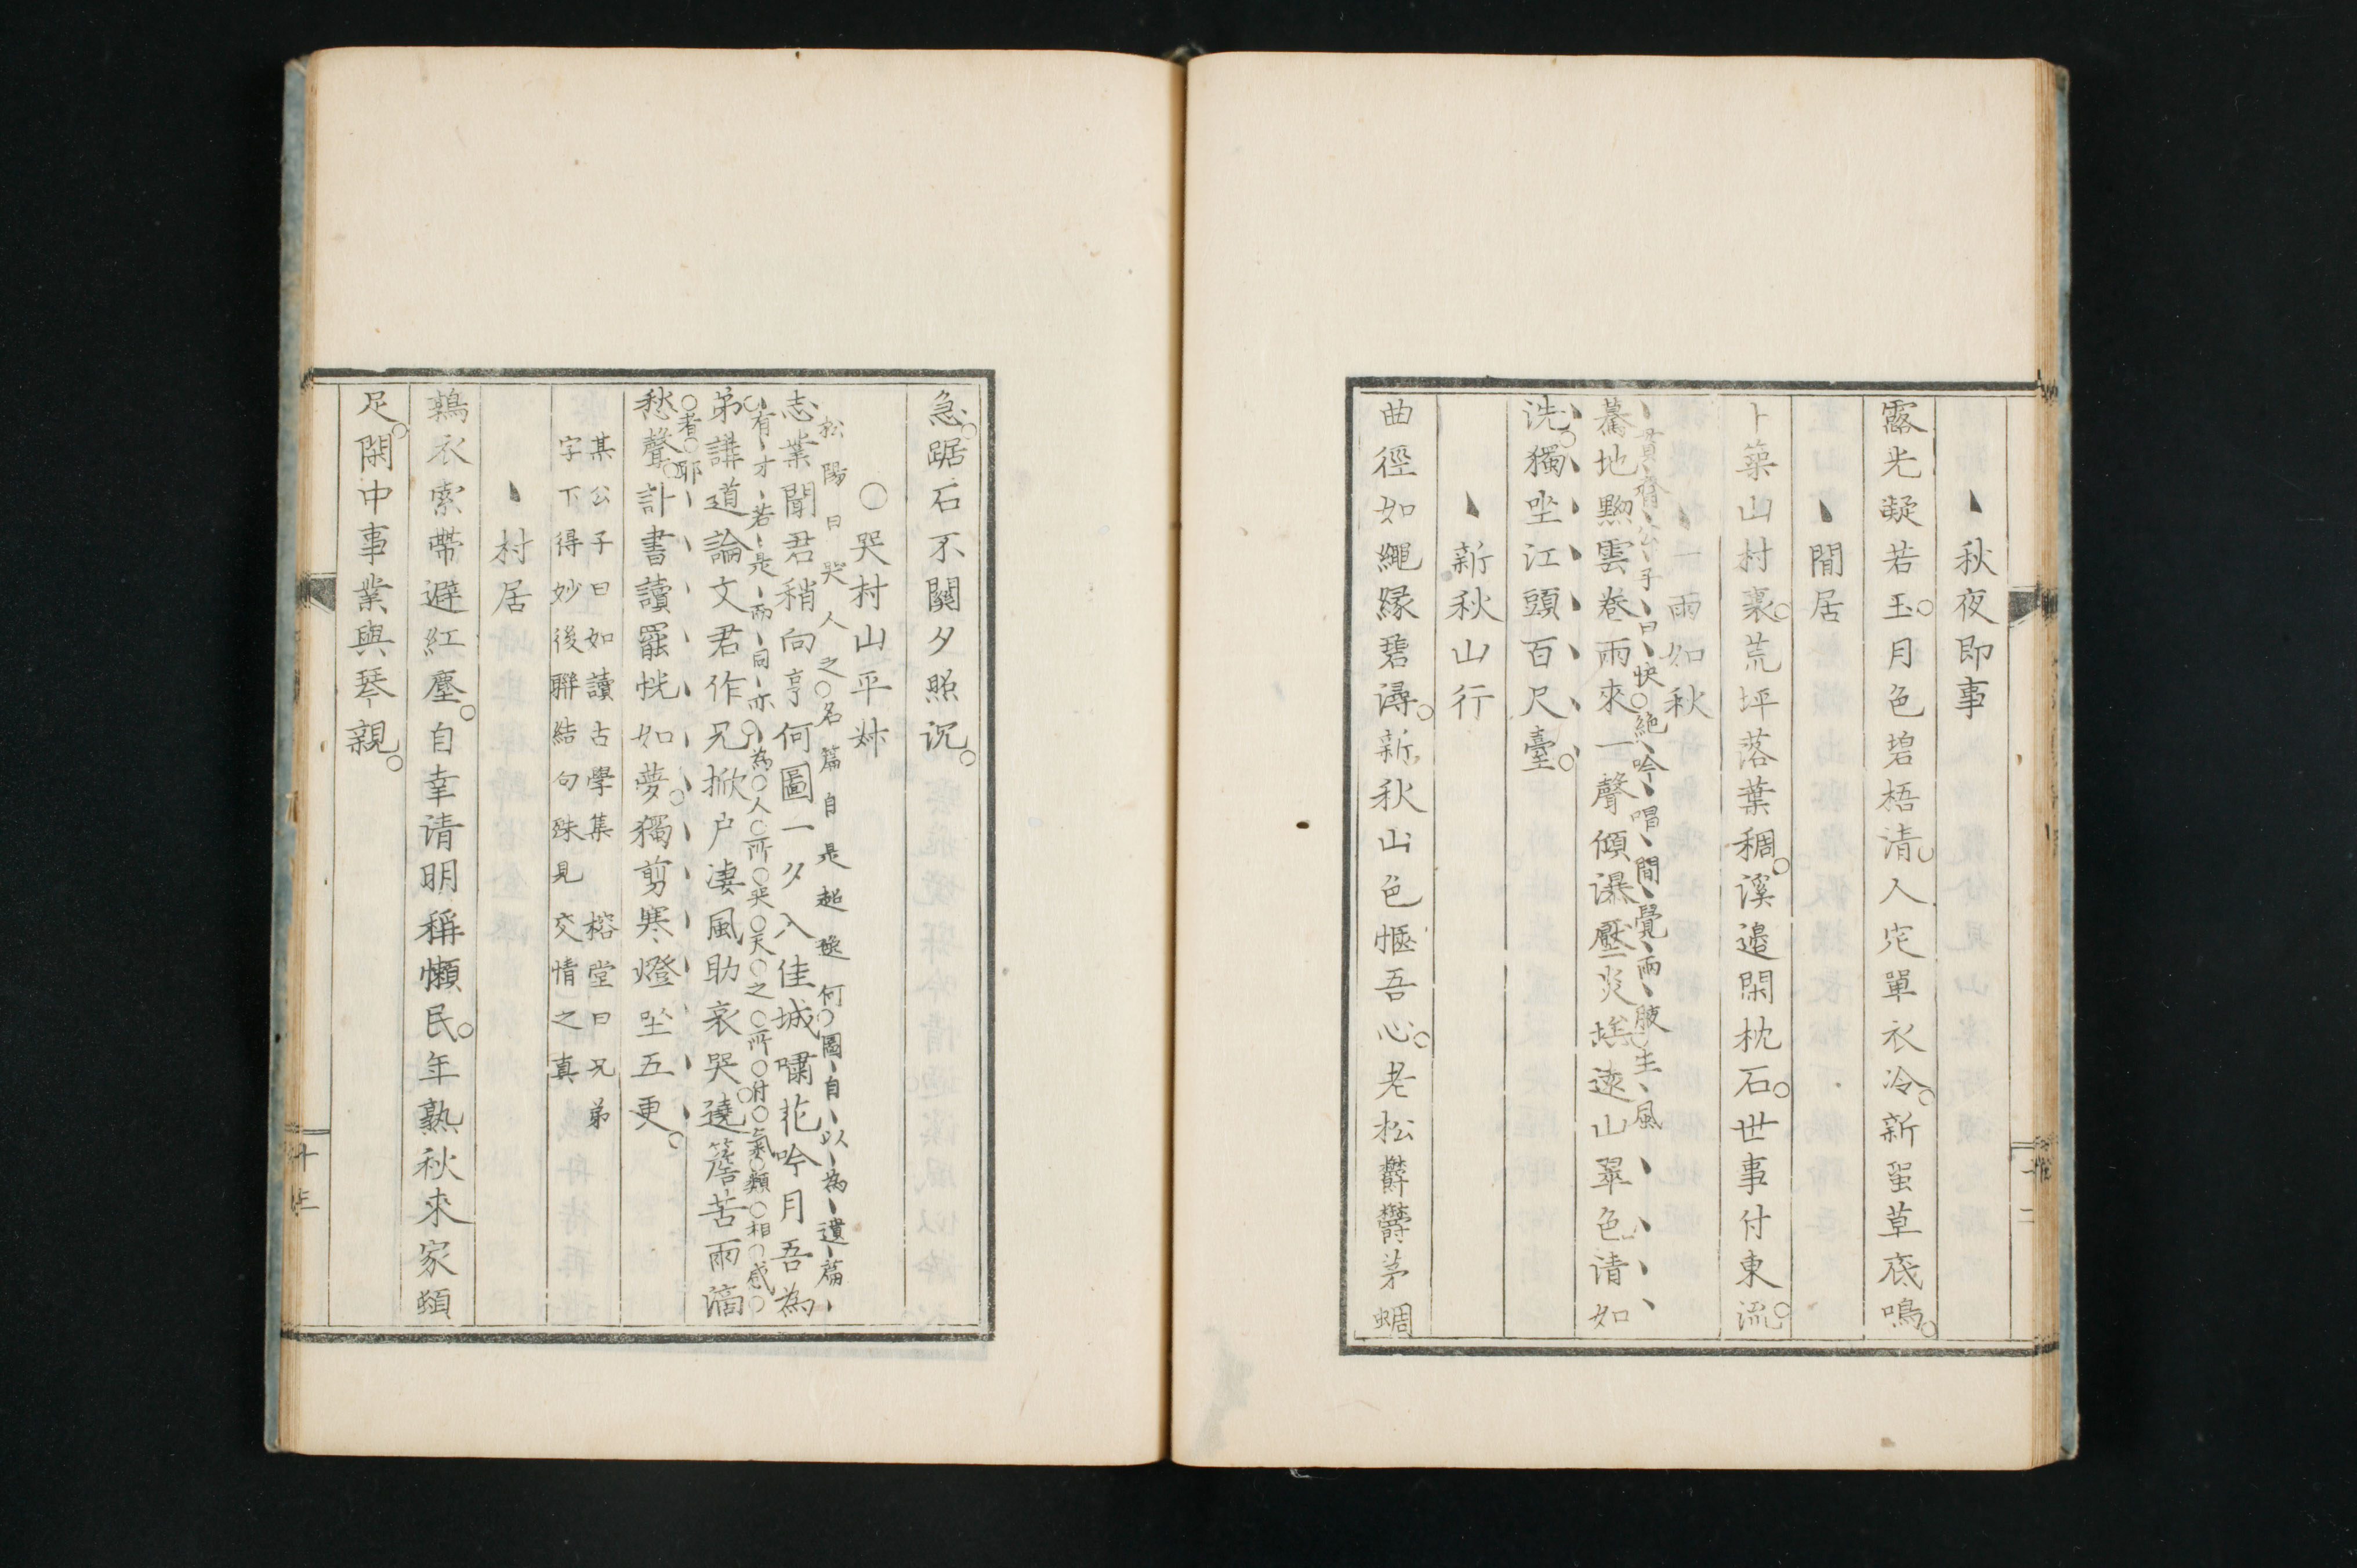 秋夜即事
露光凝若玉月色碧梧清人定單衣冷新蛩草底鳴
間居
卜築山村裏荒坪落葉稠溪邊閑枕石世事付東流
一雨如秋
貫齋公子曰快絶吟唱間覺兩腋生風
驀地黟雲卷雨來一聲傾瀑壓炎埃遠山翠色清如
洗獨坐江頭百尺臺
新秋山行
曲徑如繩緑碧潯新秋山色愜吾心老松欝欝茅蜩
急踞石不關夕照沉
哭村山平姊
松陽曰哭人之名篇自是超逸何圖自以為遺篇
志業聞君稍向亨何圖一夕入佳城嘯花吟月吾為
有才若是而同亦為人所哭天之所付氣類相感
弟講道論文君作兄掀戸凄風助哀哭遶簷苦雨滴
者耶
愁聲計書讀罷恍如夢獨剪寒燈坐五更
某公子曰如讀古學集 榕堂曰兄弟
字下得妙後聯結句殊見交情之真
村居
鶉衣索帶避紅塵自幸清明稱懶民年熟秋來家頗
足閑中事業與琴親